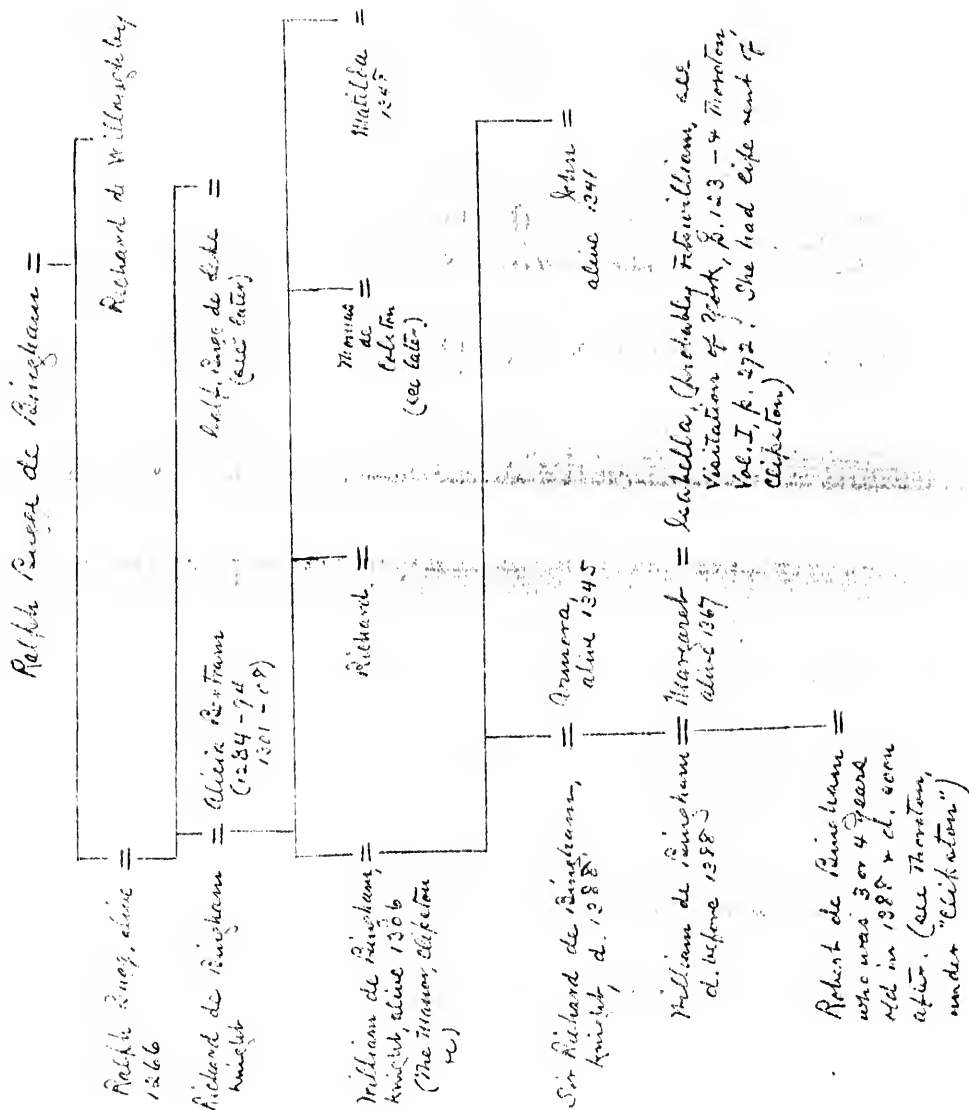 Ralph Bugge de Bingham =
Richard de Willoughby
Ralph Bugg, alive =
1266
Richard de Bingham =
knight
Alicia Bertram
(1284-94
1301-07)
Ralf Bugge de
(see later)
William de Bingham, =
knight, alive 1306
(The Manor, Clipston
&c)
Richard =
Thomas =
de
Colston
(see later)
Matilda =
1245
Sir Richard de Bingham, =
knight, d. 1388
Annora,
alive 1345
John =
alive 1341
William de Bingham =
d. before 1388
Margaret =
alive 1367
Isabella, (probably Fitzwilliam, see
Visitation of York, p. 123-4 Thoroton,
Vol. I, p. 272. She had life rent of
Clipston)
Robert de Bingham =
who was 3 or 4 years
old in 1388 & d. soon
after. (see Thoroton,
under "Clipston")